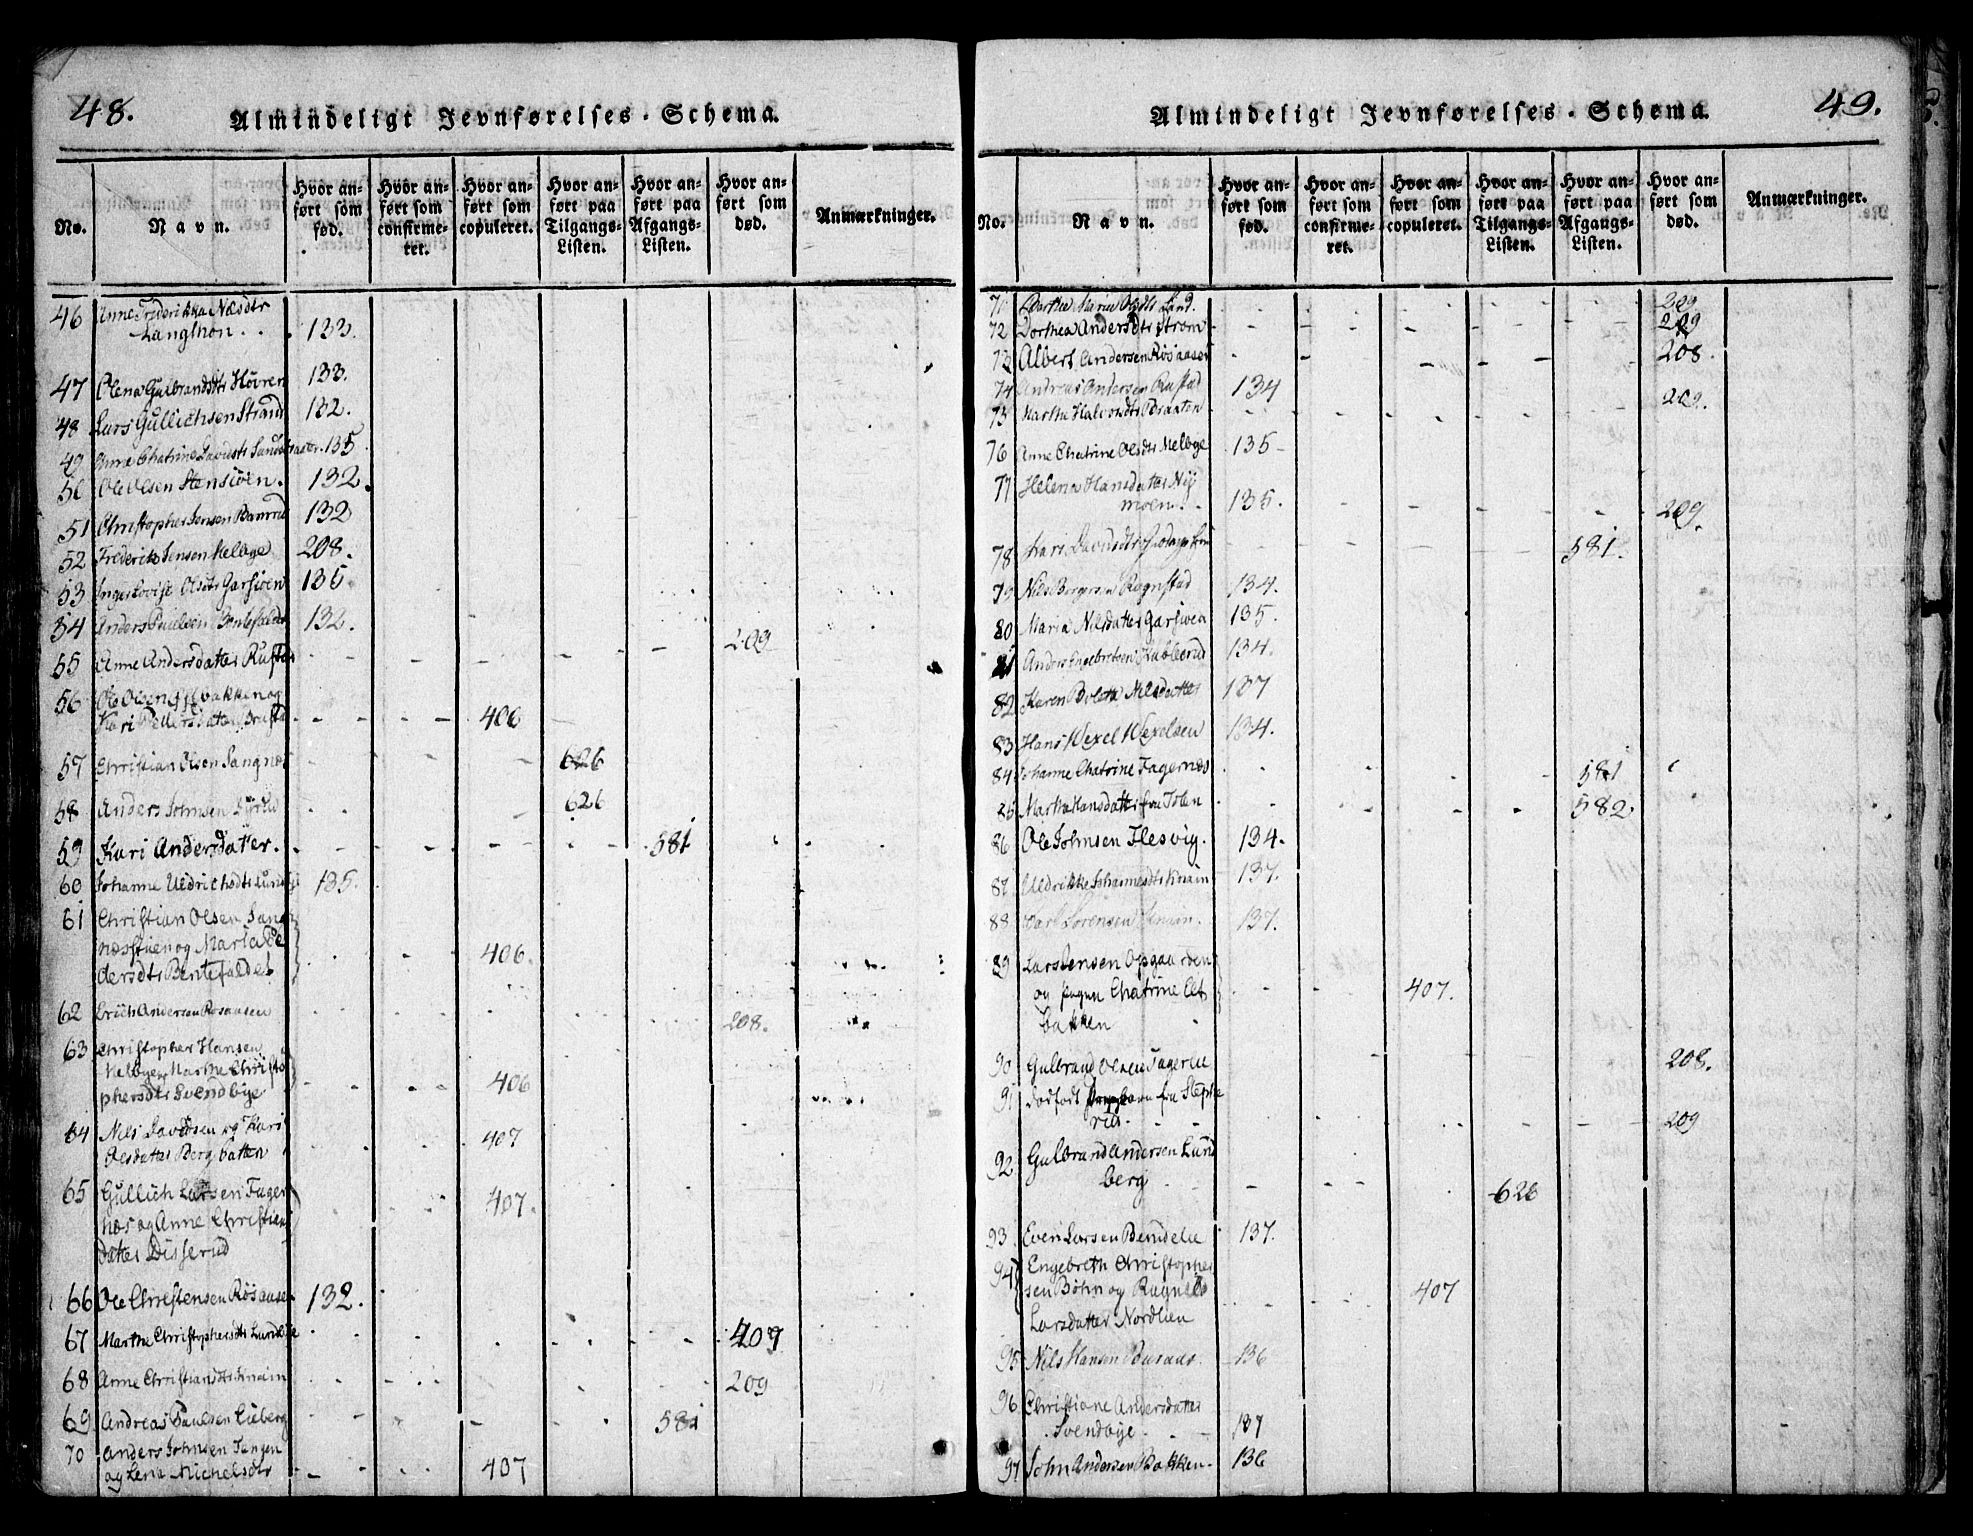 48.
Almindeligt Jevnførelses-Schema.
No.
Navn.
Hvor anført som fød.
Hvor anført som confirmeret.
Hvor anført som copuleret.
Hvor anført paa Tilgangs-Listen.
Hvor anført paa Afgangs-Listen.
Hvor anført som død.
Anmærkninger.
46 Anne Frederikka Nilsdtr
Langmon . . 133.
47 Olena Gulbrandsdtr Høvren 133.
48 Lars Gullichsen Strand 132.
49 Anne Chatrine 135.
50 Ole Olsen Stensiøen. 132.
51 Christopher Jensen 132
52 Frederik Jensen Melbye 208.
53 Inger Lovise Olsdtr Garsiøen 135.
54 Anders Paulsen 132.
55 Anne Andersdatter Rustad 209
56 Ole Olsen bakken og
Kari Pedersdatter 406
57 Christian Olsen Sangnæs 626
58 Anders Johnsen 626
59 Kari Andersdatter. 581
60 Johanne Uldrichsdtr 135.
61 Christian Olsen Sang
næsstuen og Maria Pe
dersdtr Bentefaldet 406.
62 Erich Andersen Rosaasen 208.
63 Christopher Hansen
Melbye og Marthe Christo
phersdtr Svendbye 406
64 Nils Davidsen og Kari
Olsdatter Bergbakken 407
65 Gullich Larsen Fager
næs og Anne Christians
datter Disserud 407.
66 Ole Christensen Røsaasen 132.
67 Marthe Christophersdtr Lundbye 209
68 Anne Christiansdtr 209
69 Andreas Paulsen Lieberg 581
70 Anders Johnsen Tangen
og Lena Michelsdtr 407
49.
Almindeligt Jevnførelses-Schema.
No.
Navn.
Hvor anført som fød.
Hvor anført som confirmeret.
Hvor anført som copuleret.
Hvor anført paa Tilgangs-Listen.
Hvor anført paa Afgangs-Listen.
Hvor anført som død.
Anmærkninger.
71 Marthe Maria Olsdtr 209
72 Dorthea Andersdtr Strøm 209
73 Albert Andersen Røsaasen 208.
74 Andreas Andersen Rustad 134
75 Marthe Halvorsdtr Braaten 209.
76 Anne Chatrine Olsdtr Melbye 135
77 Helena Hansdatter Ny
moen. 135. 209.
78 Kari Davidsdtr 581.
79 Nils Borgersen Rognstad 134.
80 Maria Nilsdatter Garsiøen 135.
81 Anders Engebretsen Kublerud 134.
82 Karen Nilsdatter 137
83 Hans Wexel Wexelsen 134.
84 Johanne Chatrine Fagernæs 581
85 Marthe Hansdatter fra 582.
86 Ole Johnsen Flesvig. 134.
87 Uldrikke Johannesdtr 137.
88 Carl Sørensen 137.
89 Lars Jensen Opgaarden
og Chatrine
bakken 407.
90 Gulbrand Olsen Fagerlie 208.
91 dødfødt fra Stephe
rud. 209
92 Gulbrand Andersen Lund
berg 626
93 Even Larsen 137.
94 Engebreth Christopher
sen Bøhn og Ragnild
Larsdatter Nordlien 407
95 Nils Hansen 136
96 Christiane Andersdatter
Svendbye 137
97 John Andersen Bakken 136